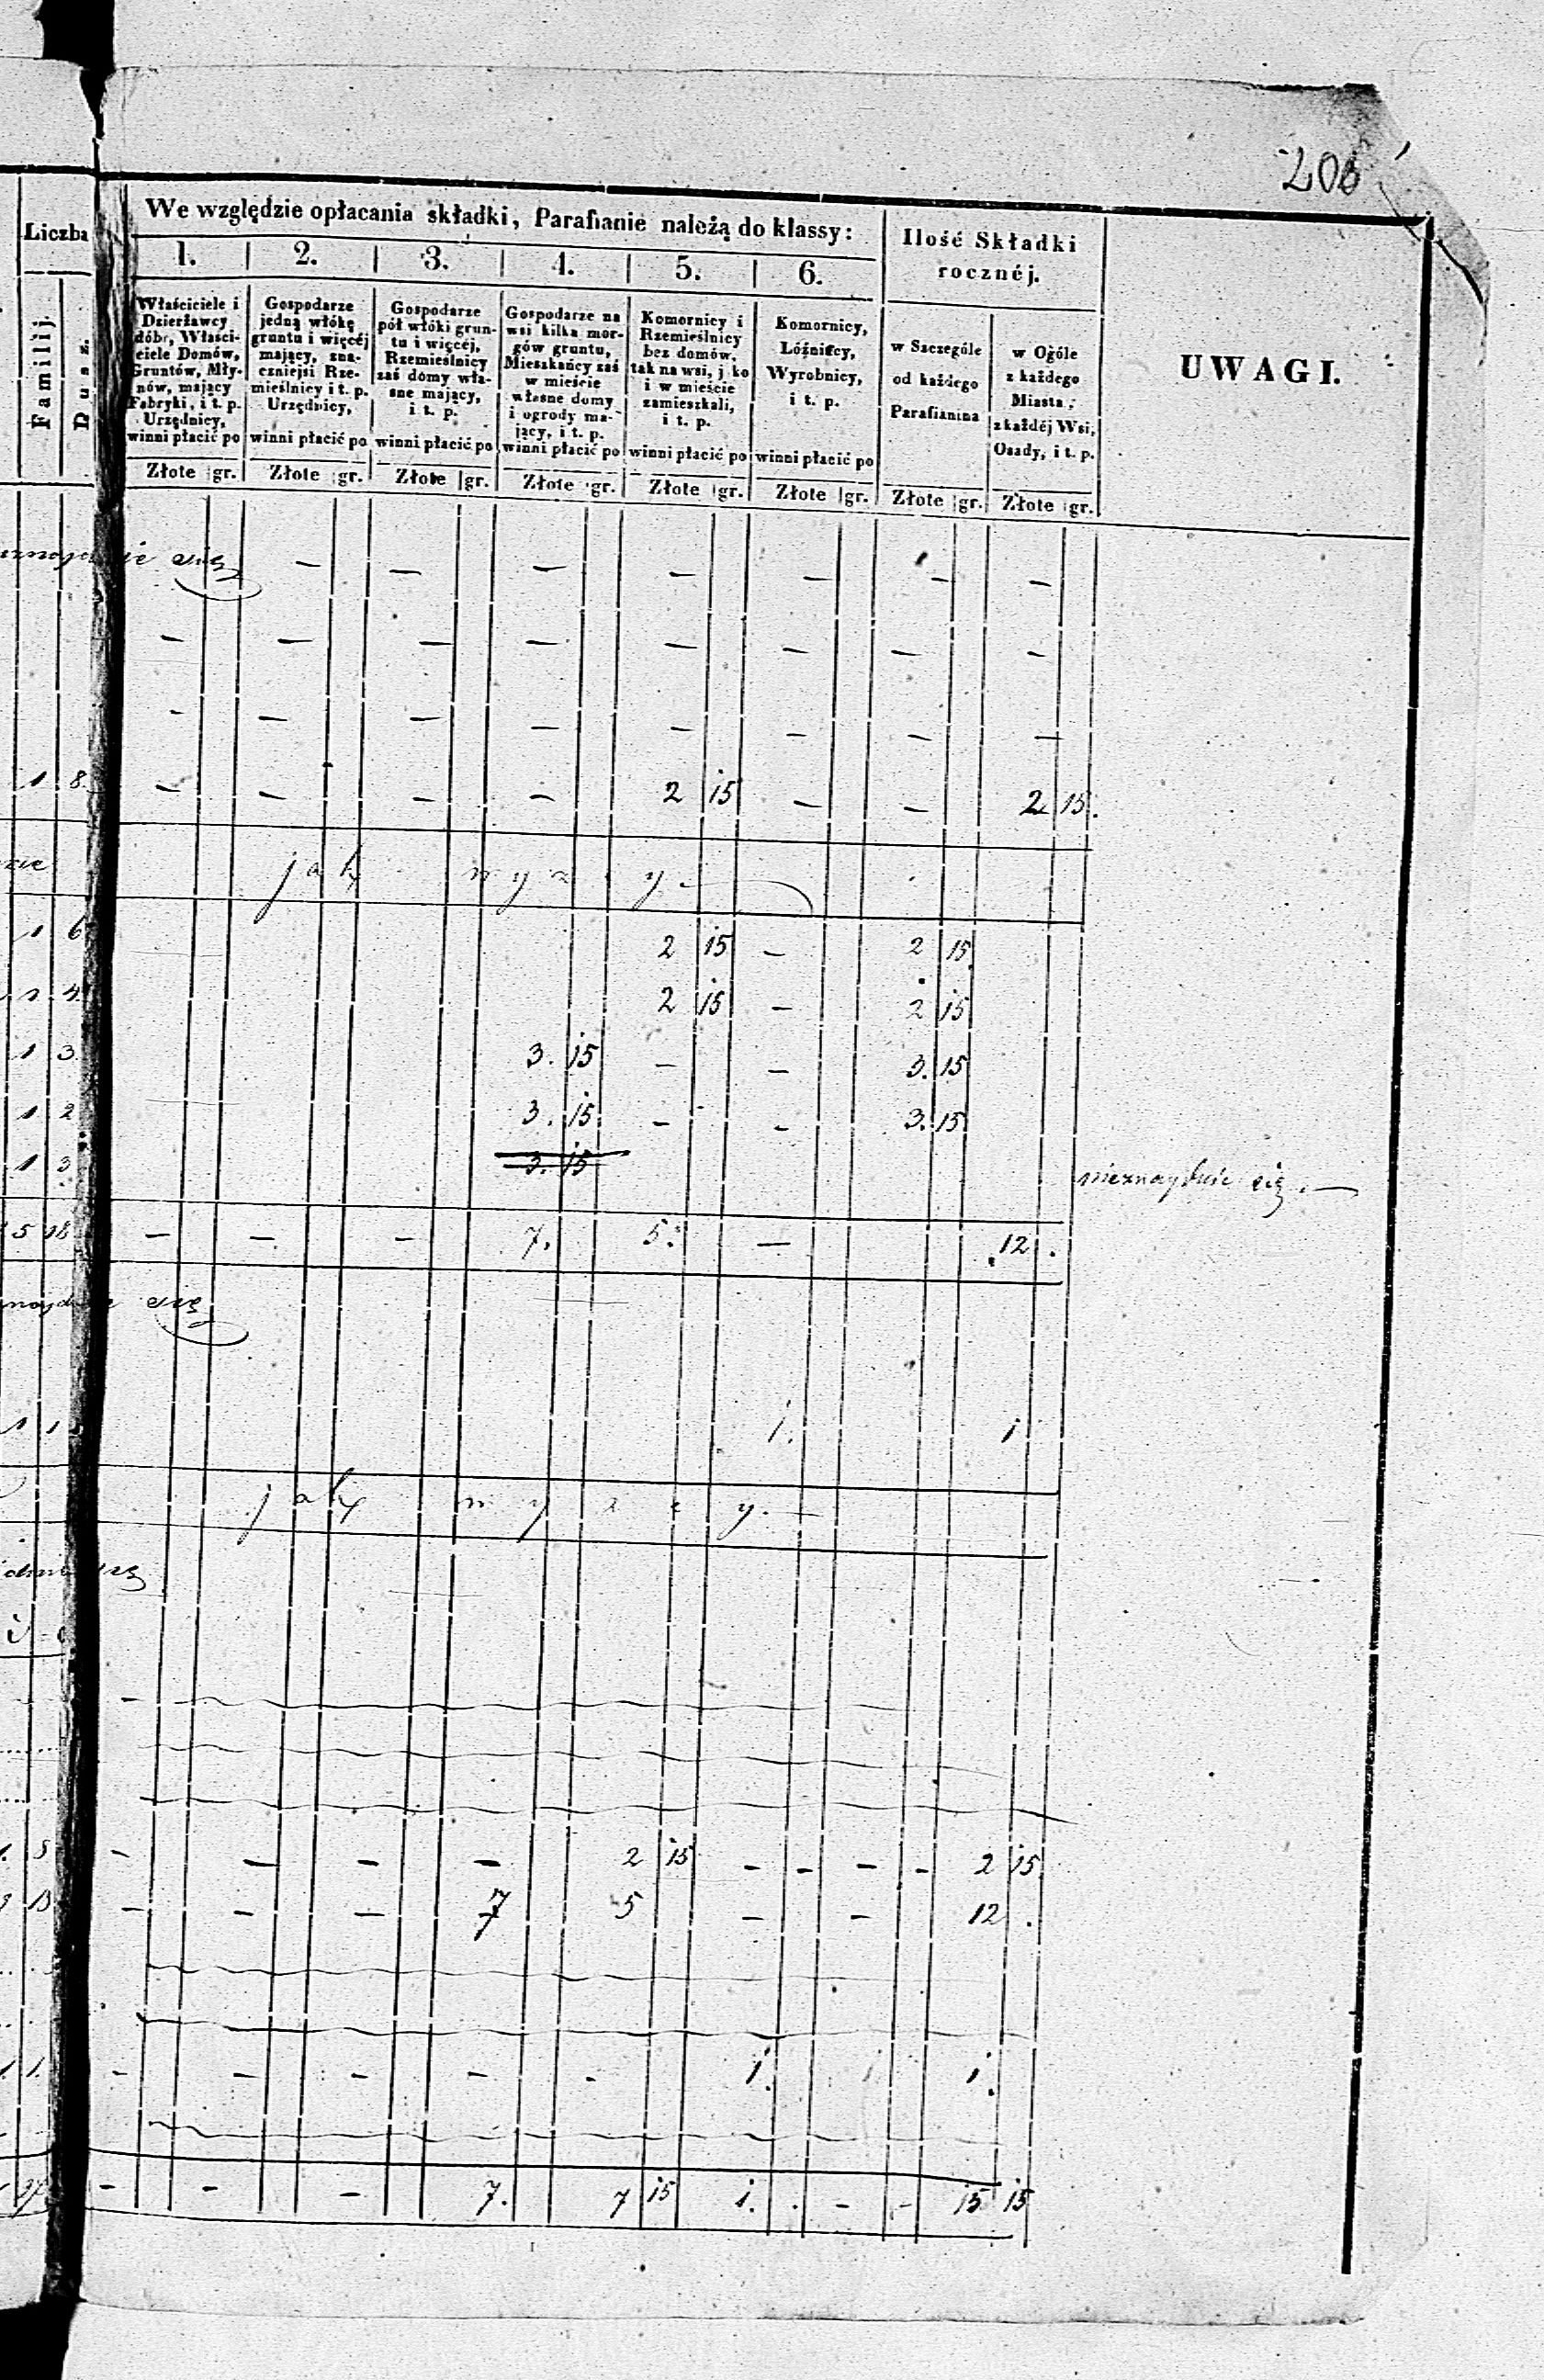 206
We względzie opłacania składki, Parafianie należą do klassy:
Liczba
Familij.
Dusz.
1. 2. 3. 4. 5. 6.
Właściciele i Dzierżawcy dóbr, Właściciele Domów, Gruntów, Młynów, mający Fabryki, i t. p. Urzędnicy,
winni płacić po
Gospodarze jedną włókę gruntu i więcéj mający, znaczniejsi Rzemieślnicy i t. p. Urzędnicy,
winni płacić po
Gospodarze pół włóki gruntu i więcéj, Rzemieślnicy zaś domy własne mający, i t. p.
winni płacić po
Gospodarze na wsi kilka morgów gruntu, Mieszkańcy zaś w mieście własne domy i ogrody mający, i t. p.
winni płacić po
Komornicy i Rzemieślnicy bez domów, tak na wsi, jko i w mieście zamieszkali, i t. p.
winni płacić po
Komornicy, Lóźnifcy, Wyrobnicy, i t. p.
winni płacić po
Ilość Składki rocznéj.
w Szczególe od każdego Parafianina
w Ogóle z każdego Miasta, z każdéj Wsi, Osady, i t. p.
UWAGI.
Złote gr. Złote gr. Złote gr. Złote gr. Złote gr. Złote gr. Złote gr. Złote gr.
się — — — — — — —
— — — — — — — —
— — — — — — — —
1 8 — — — — 2 15 — — 2 15.
jak wyżey
1 6 2 15 — 2 15
1 4 2 15 — 2 15
1 3 3. 15 — — 3. 15
1 2 3. 15 — — 3. 15
1 3 3. 15 nieznayduie się. —
5 18 — — — 7. 5. — 12 .
się
1 1 1. 1
jak wyżey.
się
— — — — 2 15 — — — — 2 15
— — — 7 5 — — 12 .
1. — — — — — 1. 1.
— — — 7. 7 15 1. . — — 15 15